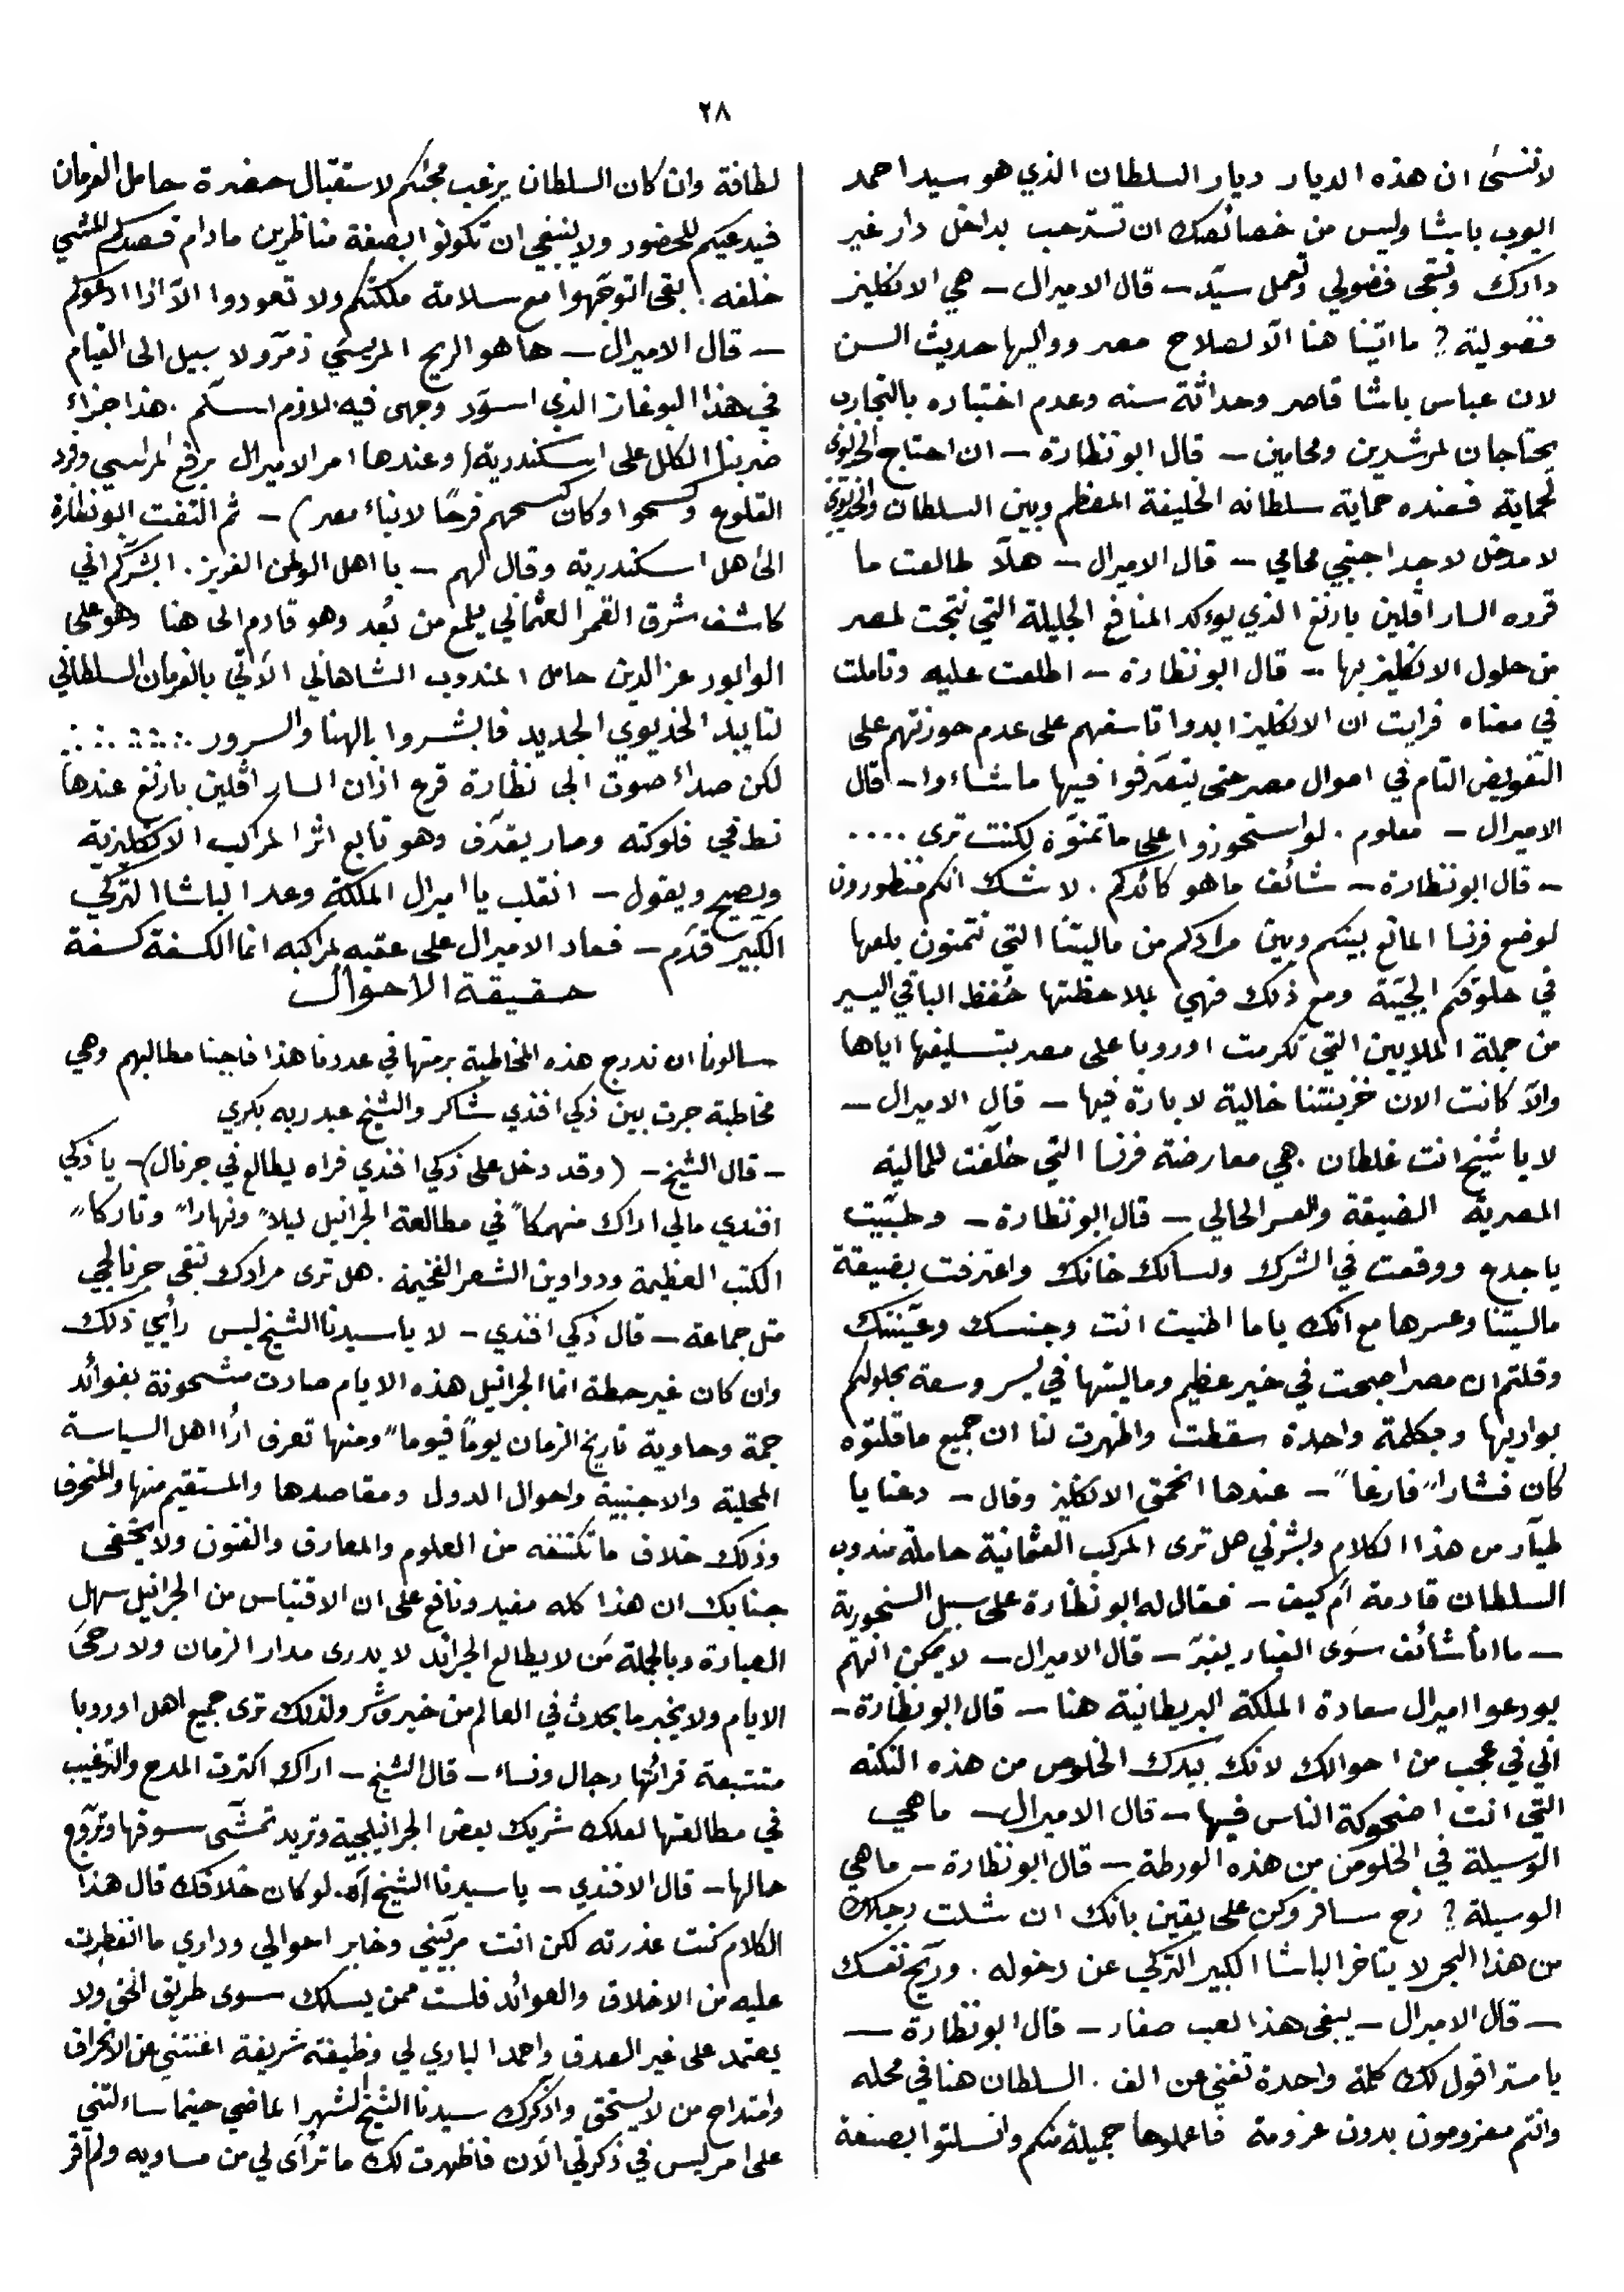 ٢٨
لا تنسَى ان هذه الديار ديار السلطان الذي هو سيد احمد
ايوب باشا وليس من خصائصك ان تسترحب بداخل دار غير
دارك وتبقى فضولي وتعمل سيّد – قال الاميرال – هي الانكليز
فضولية ? ما اتينا هنا الّا لصلاح مصر وواليها حديث السن
لان عباس باشا قاصر وحداثة سنه وعدم اختباره بالتجارب
يحتاجان لمرشدين ومحامين – قال ابو نظارة – ان احتاج الخديوي
لحماية فعنده حماية سلطانه الخليفة المعظم وبين السلطان والخديوي
لا مدخل لاحد اجنبي محامي – قال الاميرال – هلّا طالعت ما
قرره السار افلين بارنغ الذي يوءكد المنافع الجليلة التي نتجت لمصر
من حلول الانكليز بها – قال ابو نظارة – اطلعت عليه وتاملت
في معناه فرايت ان الانكليز ابدوا تاسفهم على عدم حوزتهم على
التفويض التام في اموال مصر حتى يتصَرفوا فيها ما شاءوا – قال
الاميرال – معلوم . لو استحوزوا على ما تمنوّه لكنت ترى ....
– قال ابو نظارة – شائف ما هو كائدكم . لا شك انكم منظورون
لوضع فرنسا المانع بينكم وبين مرادكم من ماليتنا التي تتمنون بلعها
في حلوقكم الجيّنة ومع ذلك فهي بملاحظتها حُفظ الباقي اليسير
من جملة الملايين التي تكرمت اوروبا على مصر بتسليفها اياها
والّا كانت الان خزينتنا خالية لا بارة فيها – قال الاميرال –
لا يا شيخ انت غلطان . هي معارضة فرنسا التي خلّفت للمالية
المصرية الضيقة والعسر الحالي – قال ابو نظارة – وطبّيت
يا جدع ووقعت في الشرك ولسانك خانك واعترفت بضيقة
ماليتنا وعسرها مع انك ياما اطنيت انت وجنسك وعيّنتك
وقلتم ان مصر اصبحت في خير عظيم وماليتها في يسر وسعة بحلولكم
بواديها وبكلمة واحدة سقطت واظهرت لنا ان جميع ما قلتوه
كان فشاراً فارغاً – عندها انحمق الانكليز وقال – دعنا يا
طيآر من هذا الكلام وبشرني هل ترى المركب العثمانية حاملة مندوب
السلطان قادمة أم كيف – فقال له ابو نظارة على سبيل السخورية
– ما انا شائف سَوى الغبار يغبّر – قال الاميرال – لا يمكن انهم
يودعوا اميرال سعادة الملكة البريطانية هنا – قال ابو نظارة –
اني في عجب من احوالك لانك بيدك الخلوص من هذه النكته
التي انت اضحوكة الناس فيها – قال الاميرال – ما هي
الوسيلة في الخلوص من هذه الورطة – قال ابو نظارة – ما هي
الوسيلة ? رُح سافر وكن على يقين بانك ان شلت رجلك
من هذا البحر لا يتاخر الباشا الكبير التركي عن دخوله . وريّح نفسك
– قال الاميرال – يبقى هذا لعب صغار – قال ابو نظارة –
يا مستر اقول لك كلمة واحدة تغني عن الف . السلطان هنا في محله
وانتم معزومون بدون عزومة فاعملوها جميلة منكم وانسلتوا بصنعة
لطافة وان كان السلطان يرغب مجئكم لاستقبال حضرة حامل الفرمان
فيدعيكم للحضور ولا ينبغي ان تكونوا بصفة مناظرين ما دام قصدكم المشي
خلفه . بقى اتوجّهوا مع سلامة ملكتكم ولا تعودوا الّا اذا ادعوكم
– قال الاميرال – ها هو الريح المريسي زمّر ولا سبيل الى القيام
في هذا البوغاز الذي اسوّد وجهى فيه لازم اسلّم . هذا جزاء
ضربنا الكلل على اسكندرية ( وعندها امر الاميرال برفع المراسي وفرد
القلوع وكسحوا وكان كسحهم فرحًا لابناء مصر ) – ثم التفت ابو نظارة
الى اهل اسكندرية وقال لهم – يا اهل الوطن العزيز . ابشرّكم اني
كاشف شرق القمر العثماني يلمع من بُعد وهو قادم الى هنا وهو على
الوابور عز الدين حامل المندوب الشاهاني الآتي بالفرمان السلطاني
لتاييد الخديوي الجديد فابشروا بالهنا والسرور
لكن صداء صوت ابى نظارة قرع اذان السار افلين بارنغ عندها
نط في فلوكته وصار يقدّف وهو تابع اثر المراكب الانكليزية
ويصيح ويقول – انقلب يا اميرال الملكة وعد الباشا التركي
الكبير قدّم – فعاد الاميرال على عقبه لمراكبه انما الكسفة كسفة
حقيقة الاحوال
سالونا ان ندرج هذه المخاطبة برمتها في عددنا هذا فاجبنا مطالبهم وهي
مخاطبة جرت بين ذكي افندي شاكر والشيخ عبد ربه بكري
– قال الشيخ – ( وقد دخل على ذكي افندي فراه يطالع في جرنال ) – يا ذكي
افندي مالي اراك منهمكاً في مطالعة الجرانيل ليلاً ونهاراً وتاركاً
الكتب العظيمة ودواوين الشعر الفخيمة . هل ترى مرادك تبقى جرنالجي
مثل جماعة – قال ذكي افندي – لا يا سيدنا الشيخ ليس رأيي ذلك
وان كان غير حطة انما الجرانيل هذه الايام صارت مشحونة بفوائد
جمة وحاوية تاريخ الزمان يوماً فيوماً ومنها تعرف ارًا اهل السياسة
المحلية والاجنبية واحوال الدول ومقاصدها والمستقيم منها والمنحرف
وذلك خلاف ما تكتنفه من العلوم والمعارف والفنون ولا يخفى
جنابك ان هذا كله مفيد ونافع على ان الاقتباس من الجرانيل سهل
العبارة وبالجملة مَن لا يطالع الجرائد لا يدرى مدار الزمان ولا رحىَ
الايام ولا يخبر ما يحدث في العالم من خير وشر ولذلك ترى جميع اهل اوروبا
متتبعة قرائتها رجال ونساء – قال الشيخ – اراك اكثرت المدح والترغيب
في مطالعتها لعلك شريك بعض الجرانيلجية وتريد تمشّى سوقها وتروّج
حالها – قال الافندي – يا سيدنا الشيخ آه . لو كان خلافك قال هذا
الكلام كنت عذرته لكن انت مربّيني وخابر احوالي وداري ما انفطرت
عليه من الاخلاق والعوائد فلست ممن يسلك سوى طريق الحق ولا
يعتمد على غير الصدق واحمد الباري لي وظيفة شريفة اغنتني عن الانحراف
وامتداح من لا يستحق واذكرك سيدنا الشيخ الشهر الماضي حينما ساءلتني
على امر ليس في ذكرتي الآن فاظهرت لك ما ترآى لي من مساويه ولم اقر